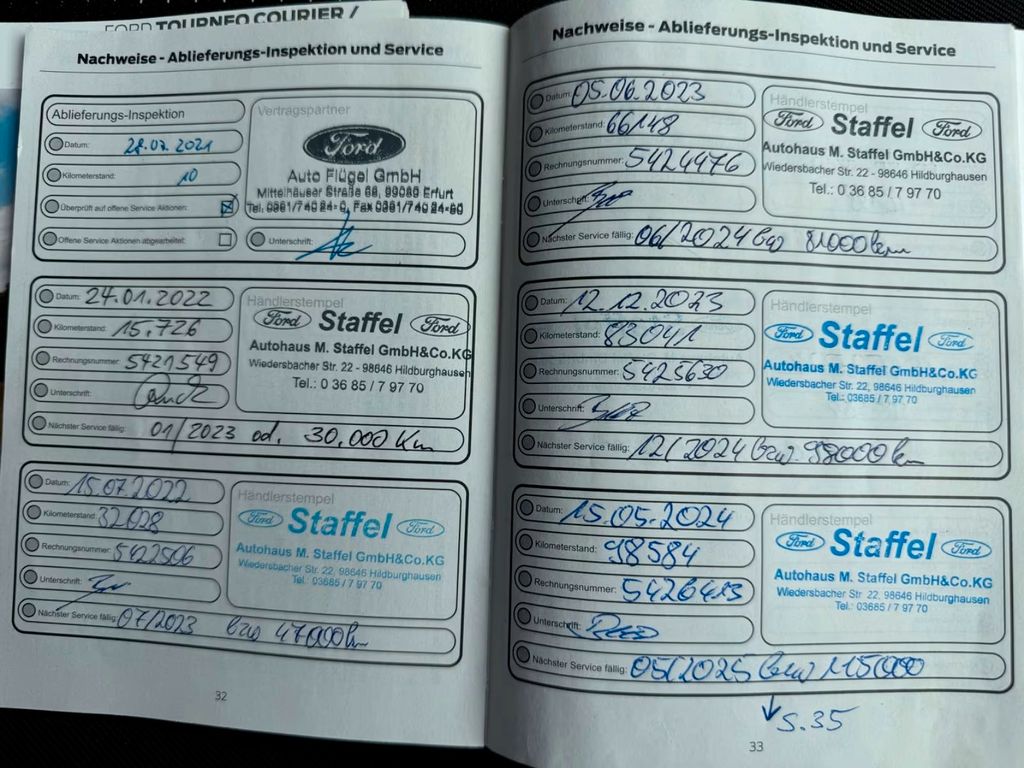 FORD TOURNEO COURIER /
Nachweise - Ablieferungs-Inspektion und Service
Ablieferungs-Inspektion
Datum: 28.07.2021
Kilometerstand: 10
Überprüft auf offene Service Aktionen:
Offene Service Aktionen abgearbeitet:
Vertragspartner
Ford
Auto Flügel GmbH
Mittelhäuser Straße 68, 99089 Erfurt
Tel. 0361/740 24-0, Fax 0361/740 24-60
Unterschrift:
Datum: 24.01.2022
Kilometerstand: 15.726
Rechnungsnummer: 5421549
Unterschrift:
Nächster Service fällig: 01/2023 od. 30.000 Km
Händlerstempel
Ford Staffel Ford
Autohaus M. Staffel GmbH&Co.KG
Wiedersbacher Str. 22 - 98646 Hildburghausen
Tel.: 0 36 85 / 7 97 70
Datum: 15.07.2022
Kilometerstand: 32028
Rechnungsnummer: 5422506
Unterschrift:
Nächster Service fällig: 07/2023 bzw 47000km
Händlerstempel
Ford Staffel Ford
Autohaus M. Staffel GmbH&Co.KG
Wiedersbacher Str. 22, 98646 Hildburghausen
Tel.: 03685 / 7 97 70
32
Nachweise - Ablieferungs-Inspektion und Service
Datum: 05.06.2023
Kilometerstand: 66148
Rechnungsnummer: 5424476
Unterschrift:
Nächster Service fällig: 06/2024 bzw 81000km
Händlerstempel
Ford Staffel Ford
Autohaus M. Staffel GmbH&Co.KG
Wiedersbacher Str. 22 - 98646 Hildburghausen
Tel.: 0 36 85 / 7 97 70
Datum: 12.12.2023
Kilometerstand: 83041
Rechnungsnummer: 5425630
Unterschrift:
Nächster Service fällig: 12/2024 bzw 98000km
Händlerstempel
Ford Staffel Ford
Autohaus M. Staffel GmbH&Co.KG
Wiedersbacher Str. 22, 98646 Hildburghausen
Tel.: 03685 / 7 97 70
Datum: 15.05.2024
Kilometerstand: 98584
Rechnungsnummer: 5426413
Unterschrift:
Nächster Service fällig: 05/2025 bzw 115000
Händlerstempel
Ford Staffel Ford
Autohaus M. Staffel GmbH&Co.KG
Wiedersbacher Str. 22, 98646 Hildburghausen
Tel.: 03685 / 7 97 70
↓ S. 35
33